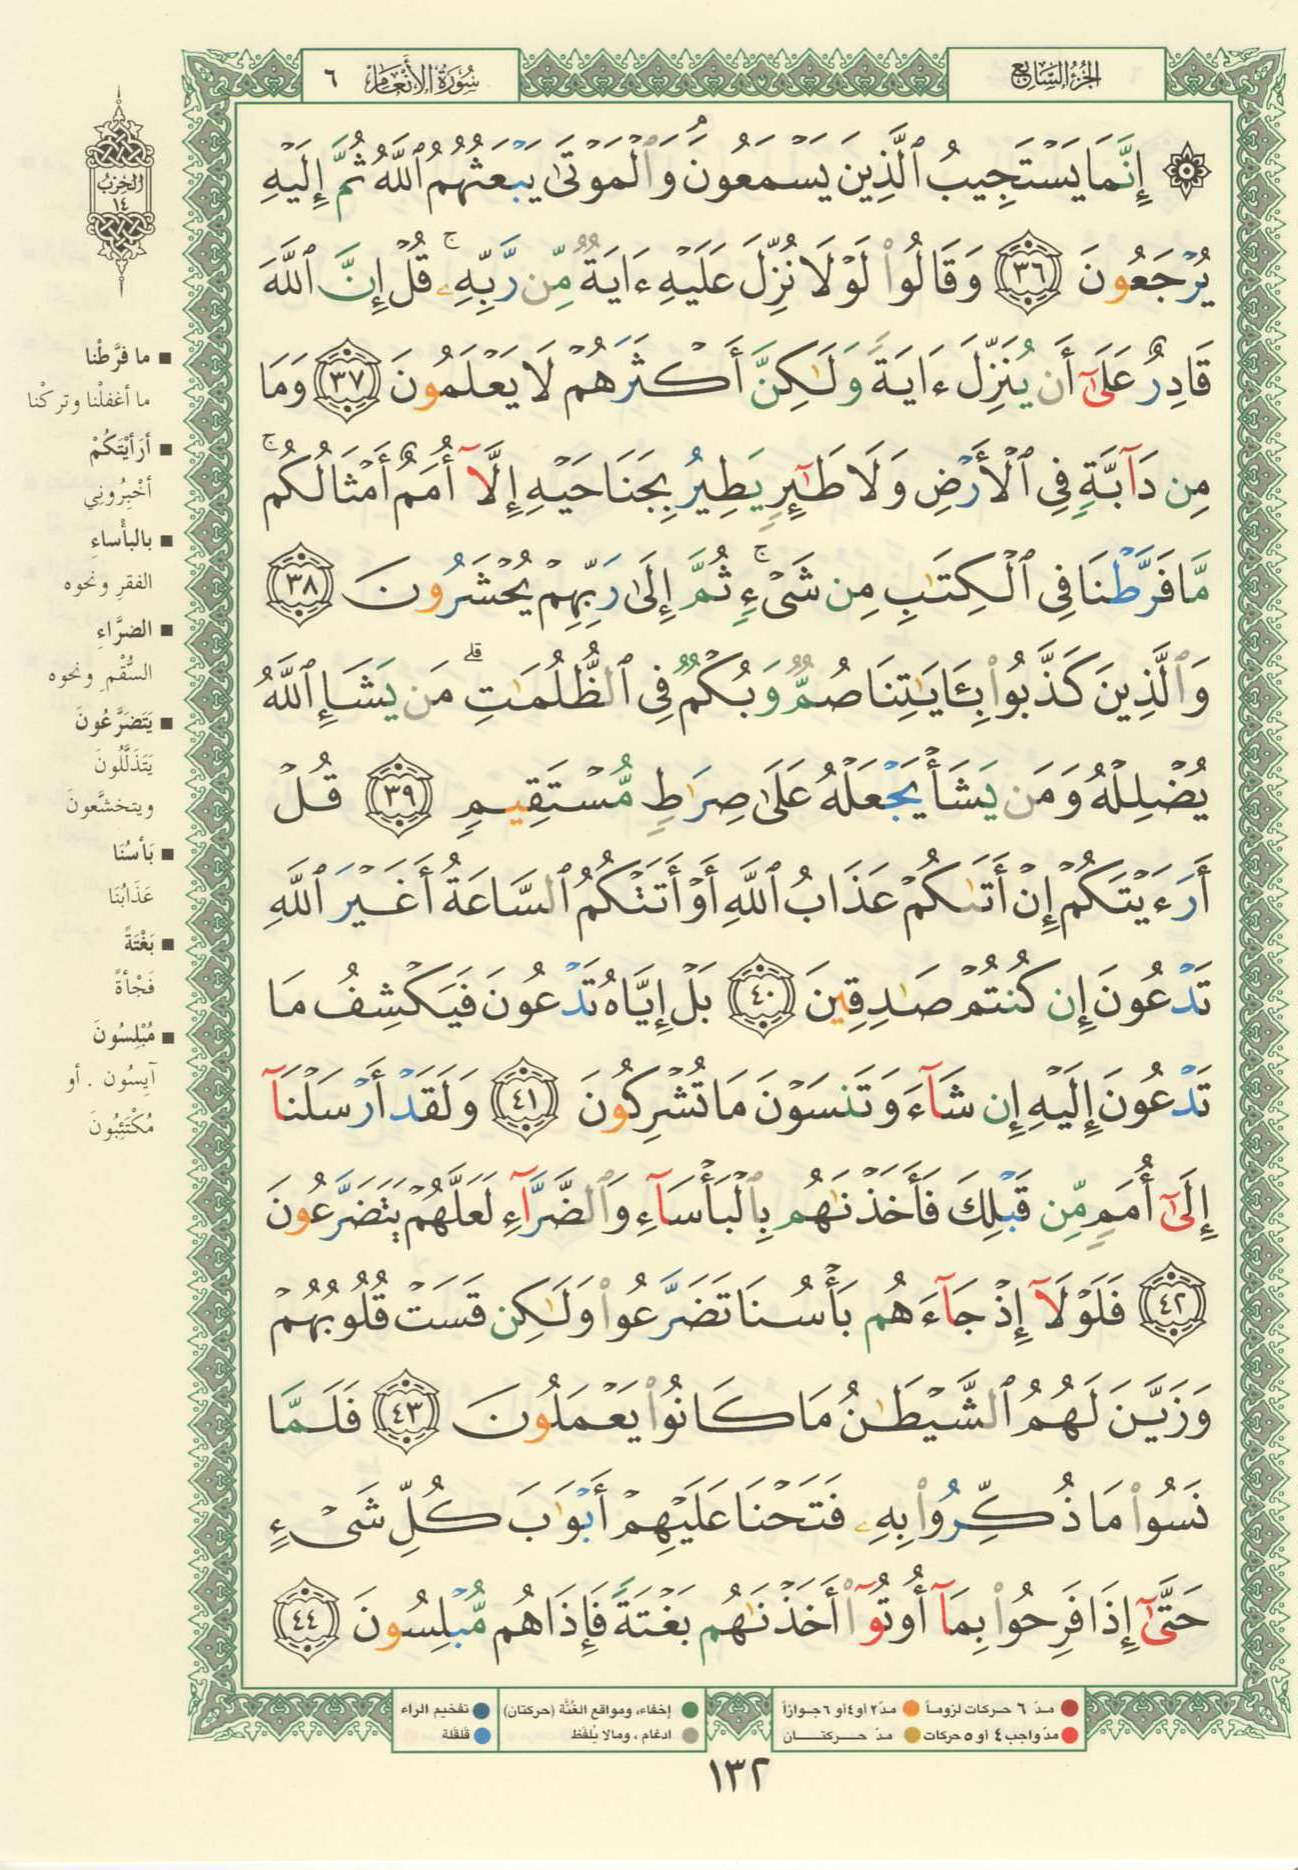 الجزء السابع
سورة الأنعام ٦
۞ إِنَّمَا يَسْتَجِيبُ ٱلَّذِينَ يَسْمَعُونَ وَٱلْمَوْتَىٰ يَبْعَثُهُمُ ٱللَّهُ ثُمَّ إِلَيْهِ
يُرْجَعُونَ ٣٦ وَقَالُوا۟ لَوْلَا نُزِّلَ عَلَيْهِ ءَايَةٌ مِّن رَّبِّهِۦ ۚ قُلْ إِنَّ ٱللَّهَ
قَادِرٌ عَلَىٰٓ أَن يُنَزِّلَ ءَايَةً وَلَٰكِنَّ أَكْثَرَهُمْ لَا يَعْلَمُونَ ٣٧ وَمَا
مِن دَآبَّةٍ فِى ٱلْأَرْضِ وَلَا طَٰٓئِرٍ يَطِيرُ بِجَنَاحَيْهِ إِلَّآ أُمَمٌ أَمْثَالُكُم ۚ
مَّا فَرَّطْنَا فِى ٱلْكِتَٰبِ مِن شَىْءٍ ۚ ثُمَّ إِلَىٰ رَبِّهِمْ يُحْشَرُونَ ٣٨
وَٱلَّذِينَ كَذَّبُوا۟ بِـَٔايَٰتِنَا صُمٌّ وَبُكْمٌ فِى ٱلظُّلُمَٰتِ ۗ مَن يَشَإِ ٱللَّهُ
يُضْلِلْهُ وَمَن يَشَأْ يَجْعَلْهُ عَلَىٰ صِرَٰطٍ مُّسْتَقِيمٍ ٣٩ قُلْ
أَرَءَيْتَكُمْ إِنْ أَتَىٰكُمْ عَذَابُ ٱللَّهِ أَوْ أَتَتْكُمُ ٱلسَّاعَةُ أَغَيْرَ ٱللَّهِ
تَدْعُونَ إِن كُنتُمْ صَٰدِقِينَ ٤٠ بَلْ إِيَّاهُ تَدْعُونَ فَيَكْشِفُ مَا
تَدْعُونَ إِلَيْهِ إِن شَآءَ وَتَنسَوْنَ مَا تُشْرِكُونَ ٤١ وَلَقَدْ أَرْسَلْنَآ
إِلَىٰٓ أُمَمٍ مِّن قَبْلِكَ فَأَخَذْنَٰهُم بِٱلْبَأْسَآءِ وَٱلضَّرَّآءِ لَعَلَّهُمْ يَتَضَرَّعُونَ
٤٢ فَلَوْلَآ إِذْ جَآءَهُم بَأْسُنَا تَضَرَّعُوا۟ وَلَٰكِن قَسَتْ قُلُوبُهُمْ
وَزَيَّنَ لَهُمُ ٱلشَّيْطَٰنُ مَا كَانُوا۟ يَعْمَلُونَ ٤٣ فَلَمَّا
نَسُوا۟ مَا ذُكِّرُوا۟ بِهِۦ فَتَحْنَا عَلَيْهِمْ أَبْوَٰبَ كُلِّ شَىْءٍ
حَتَّىٰٓ إِذَا فَرِحُوا۟ بِمَآ أُوتُوٓا۟ أَخَذْنَٰهُم بَغْتَةً فَإِذَا هُم مُّبْلِسُونَ ٤٤
الحزب
١٤
■ ما فرَّطْنا
ما أغفلْنا وتركْنا
■ أرَأيْتَكُمْ
أخْبِرُوني
■ بالبأْساءِ
الفقرِ ونحوه
■ الضرَّاءِ
السُّقْمِ ونحوه
■ يَتَضَرَّعُونَ
يَتَذَلَّلُونَ
ويتخشَّعونَ
■ بَأسُنَا
عَذَابُنَا
■ بَغْتَةً
فَجْأةً
■ مُبْلِسُونَ
آيِسُون . أو
مُكْتَئِبُونَ
مدّ ٦ حركات لزوماً مدّ ٢ أو ٤ أو ٦ جوازاً
مدّ واجب ٤ أو ٥ حركات مدّ حركتان
إخفاء، ومواقع الغُنَّة (حركتان) تفخيم الراء
ادغام ، ومالا يُلفَظ قلقلة
١٣٢